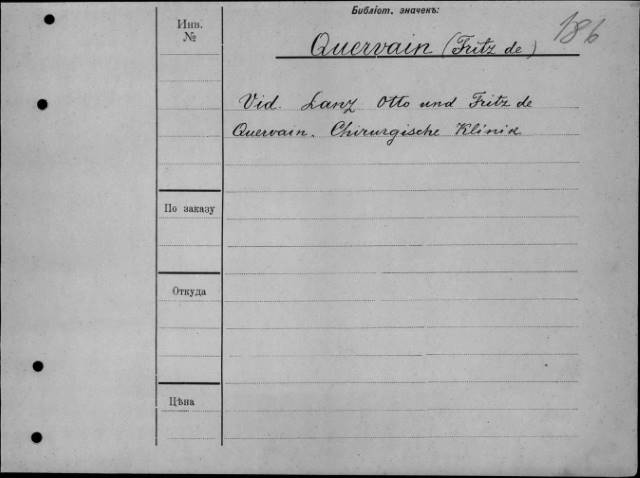 Библіот. значекъ:
186
Инв.
№
Quervain (Fritz de)
Vid. Lanz Otto und Fritz de
Quervain. Chirurgische Klinik
По заказу
Откуда
Цѣна